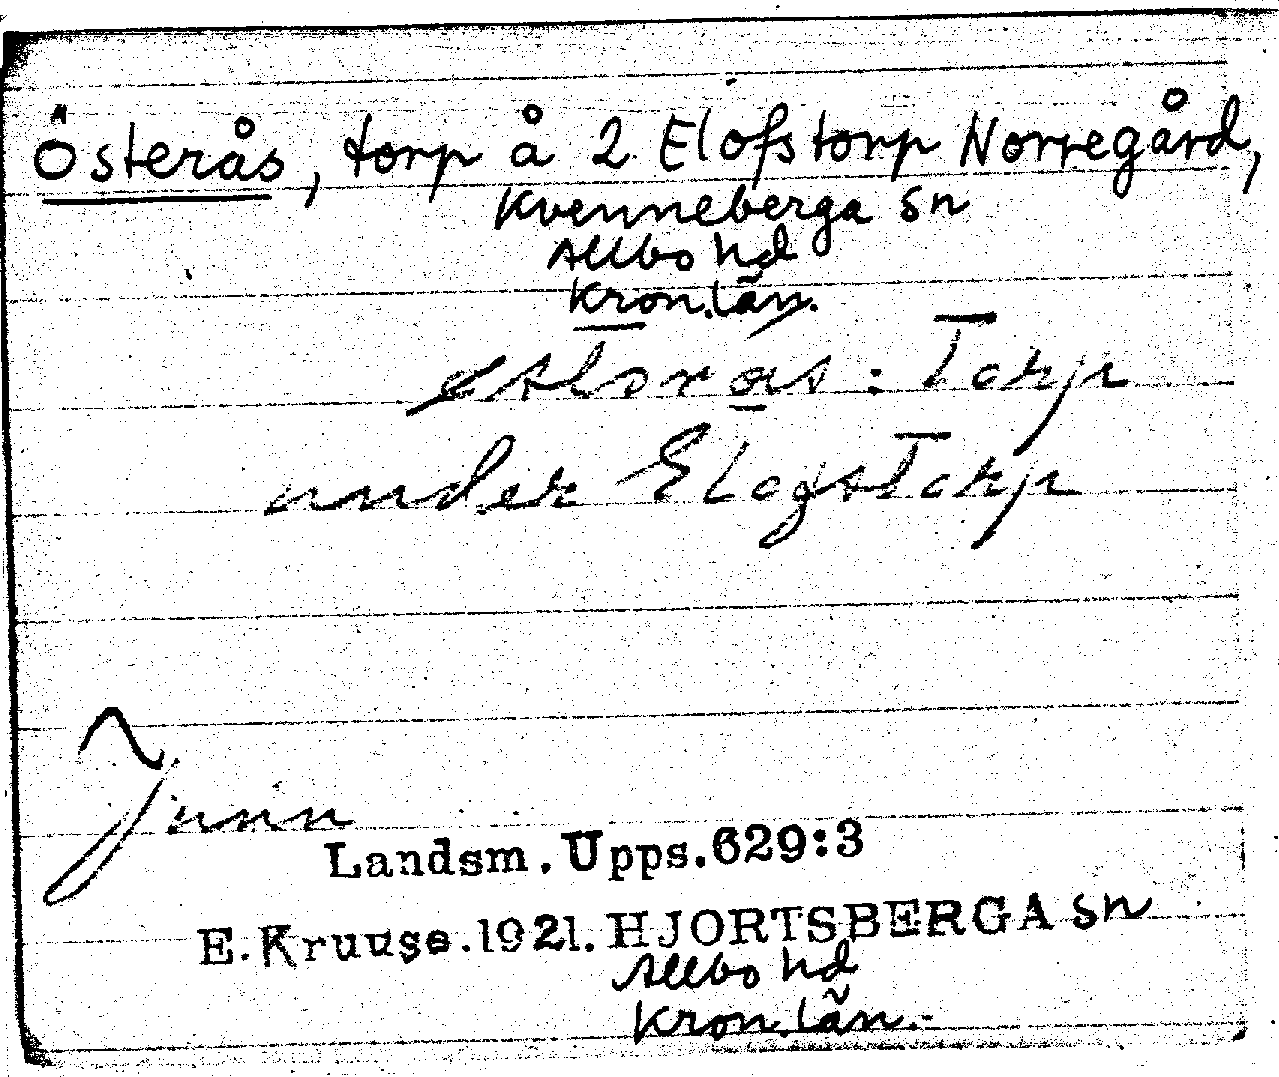 Österås, torp å 2 Elofstorp Norregård,
Kvenneberga sn
Allbo hd
Kron.län.
: Torp
under Elogstorp
Junn
Landsm. Upps.629:3
E.Kruuse.1921. HJORTSBERGA sn
Allbo hd
Kron.län.-